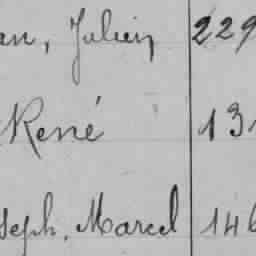 an, Julien 229
René 13
seph, Marcel 146